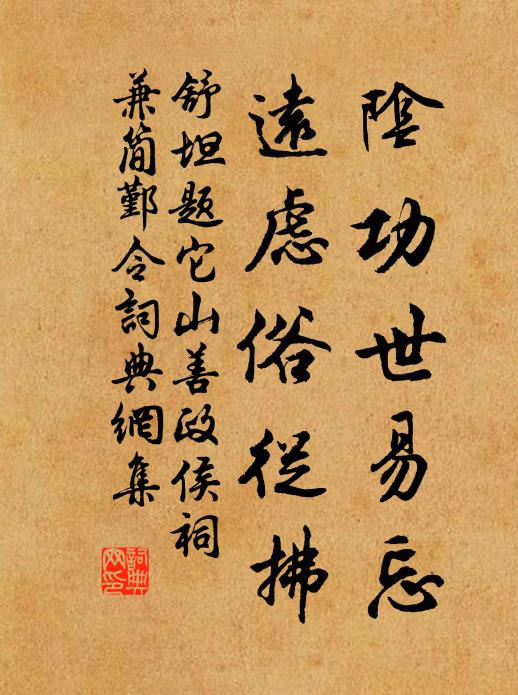 陰功世易忘
遠慮俗從拂
舒坦題它山善政侯祠
兼簡鄞令詞典網集
詞典
网印